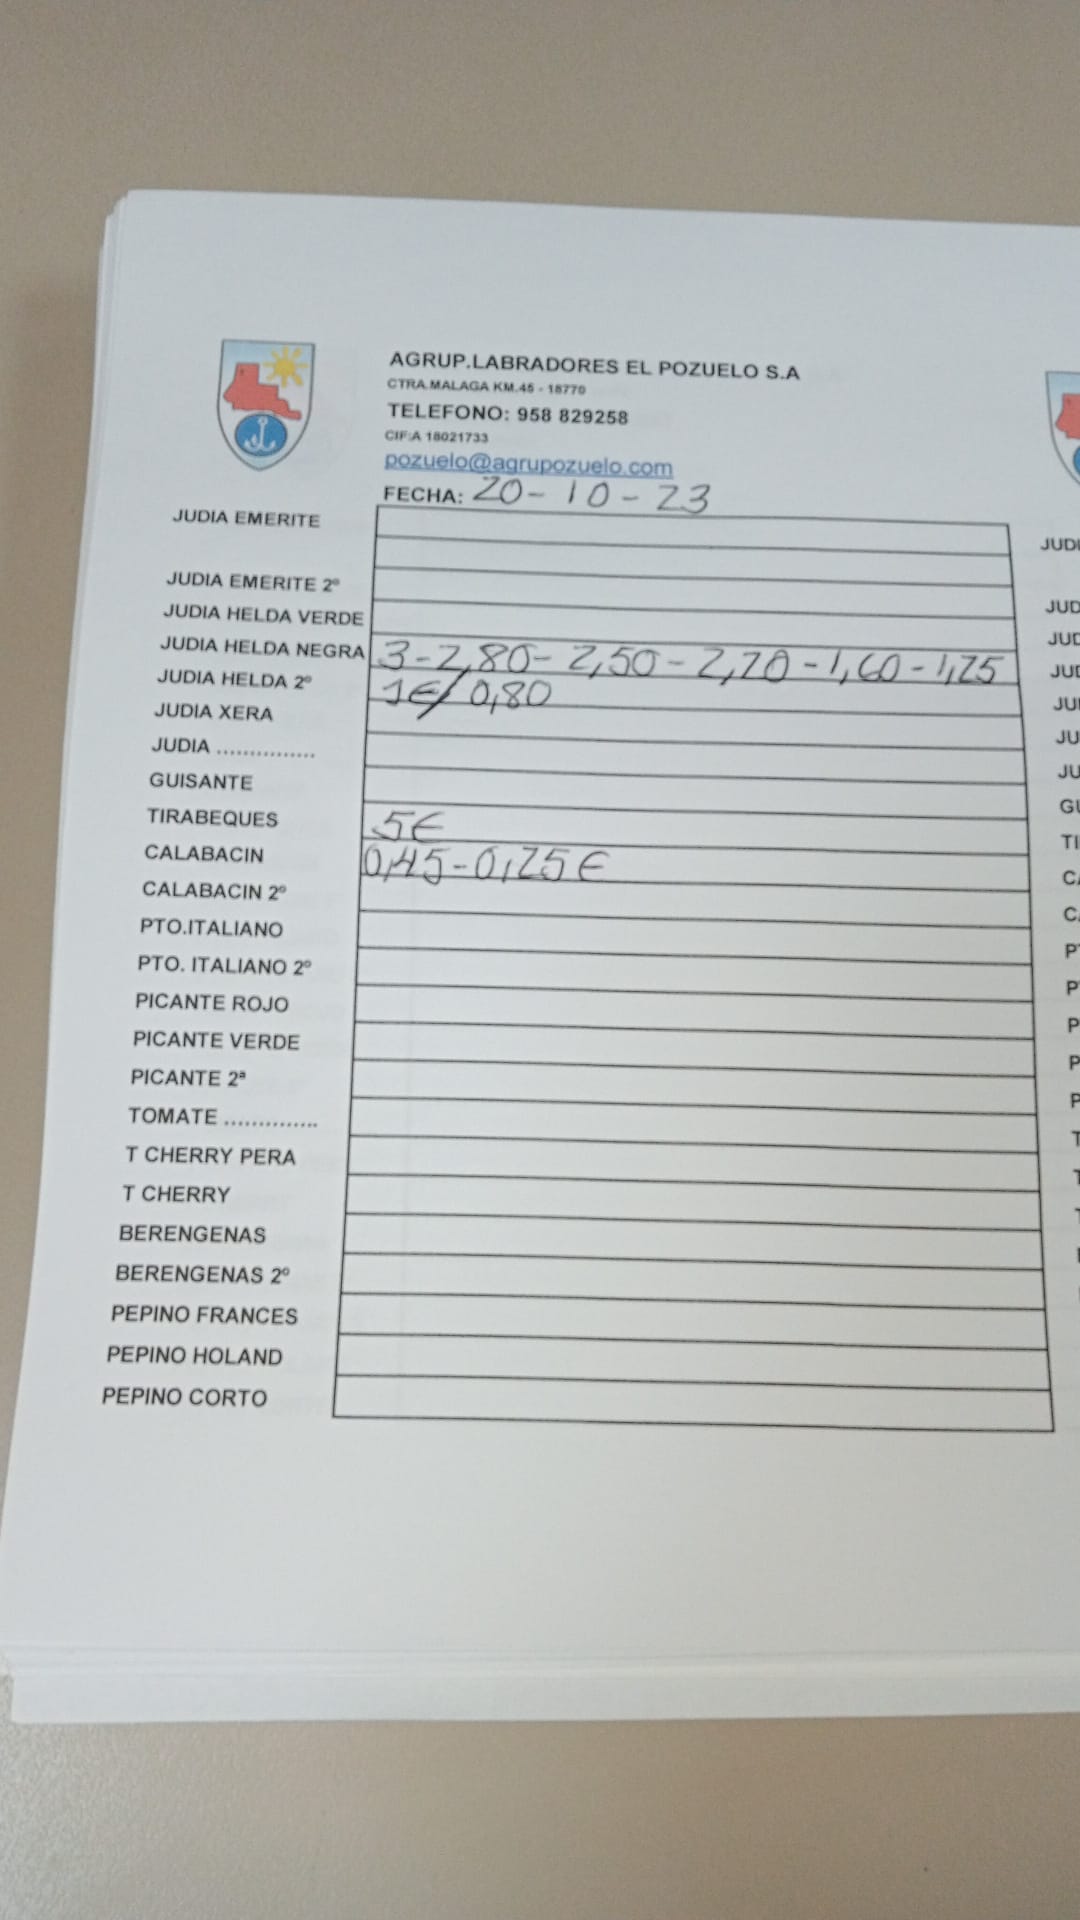 AGRUP.LABRADORES EL POZUELO S.A
CTRA.MALAGA KM.45 - 18770
TELEFONO: 958 829258
CIF:A 18021733
pozuelo@agrupozuelo.com
FECHA: 20-10-23
JUDIA EMERITE
JUDIA EMERITE 2º
JUDIA HELDA VERDE
JUDIA HELDA NEGRA 3-2,80-2,50-2,20-1,60-1,25
JUDIA HELDA 2º 1€/0,80
JUDIA XERA
JUDIA ...............
GUISANTE
TIRABEQUES 5€
CALABACIN 0,45-0,25€
CALABACIN 2º
PTO.ITALIANO
PTO. ITALIANO 2º
PICANTE ROJO
PICANTE VERDE
PICANTE 2ª
TOMATE ..............
T CHERRY PERA
T CHERRY
BERENGENAS
BERENGENAS 2º
PEPINO FRANCES
PEPINO HOLAND
PEPINO CORTO